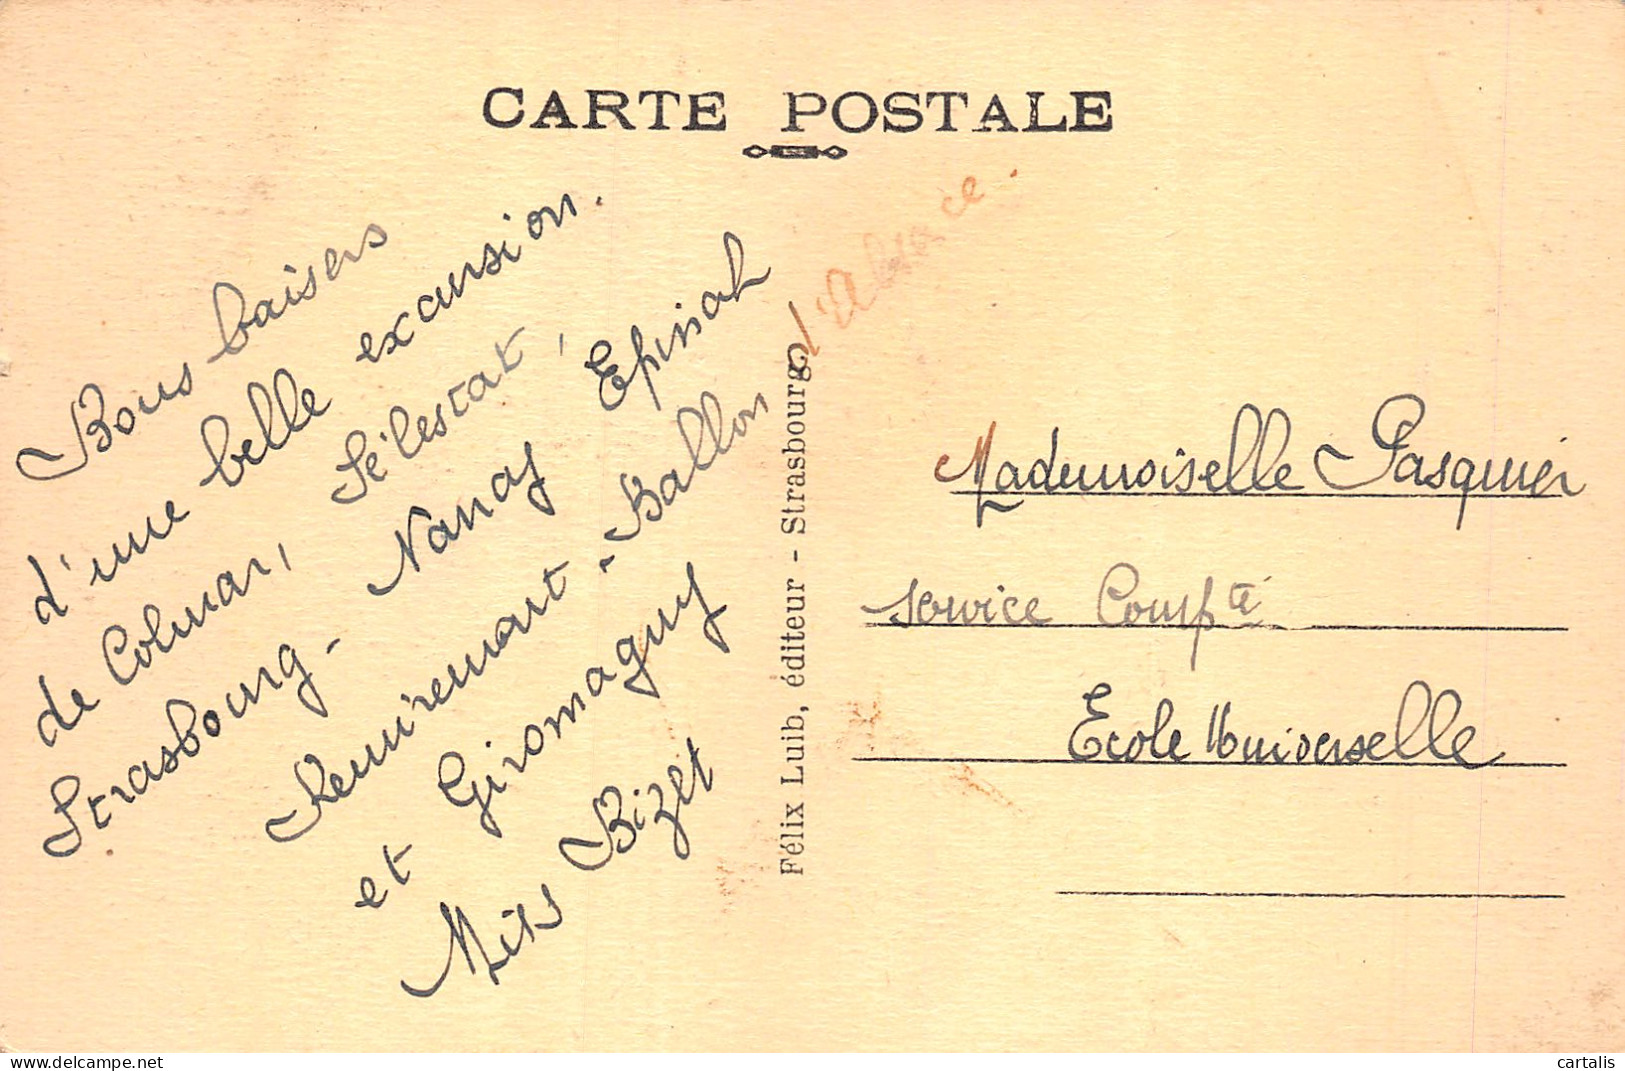 CARTE POSTALE
Bons baisers
d'une belle excursion.
de Colmar, Sélestat,
Strasbourg - Nancy Epinal
Remiremont - Ballon d'Alsace.
et Giromagny
Bizet
Félix Luib, éditeur - Strasbourg
Mademoiselle Pasquier
Service Compté
Ecole Universelle
www.delcampe.net
cartalis